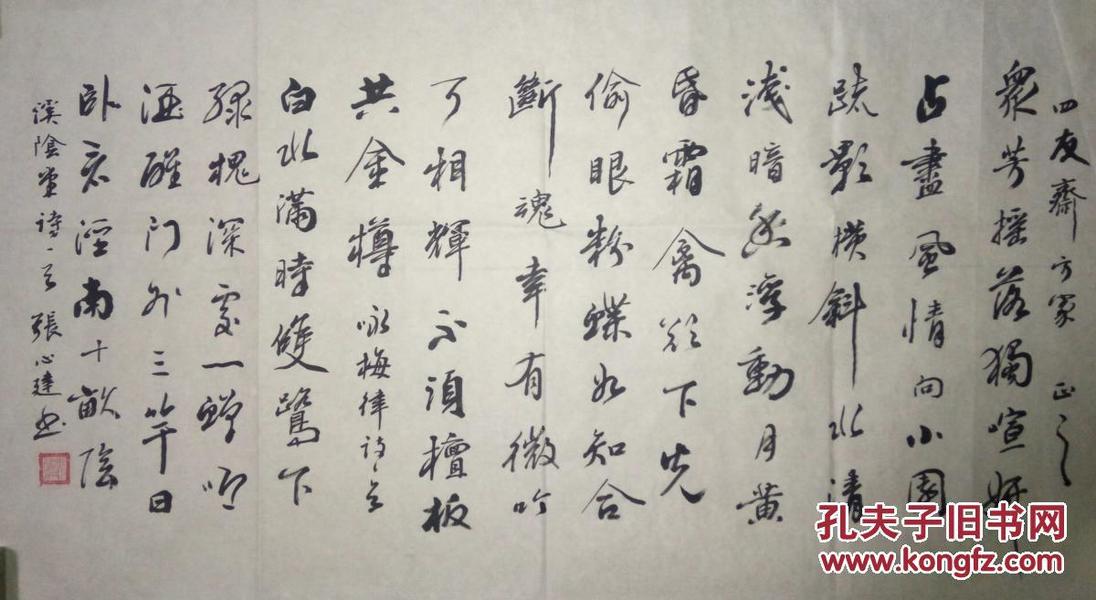 四友齋方家 正之
衆芳摇落獨喧妍
占盡風情向小園
疏影横斜水清
淺暗香浮動月黄
昏霜禽欲下先
偷眼粉蝶如知合
斷魂幸有微吟
可相輝不須檀板
共金樽 咏梅律诗
白水滿時雙鷺下
緑槐深處一蟬鳴
酒醒門外三竿日
卧看溪南十畝陰
溪陰堂诗 張心建書
孔夫子旧书网
www.kongfz.com